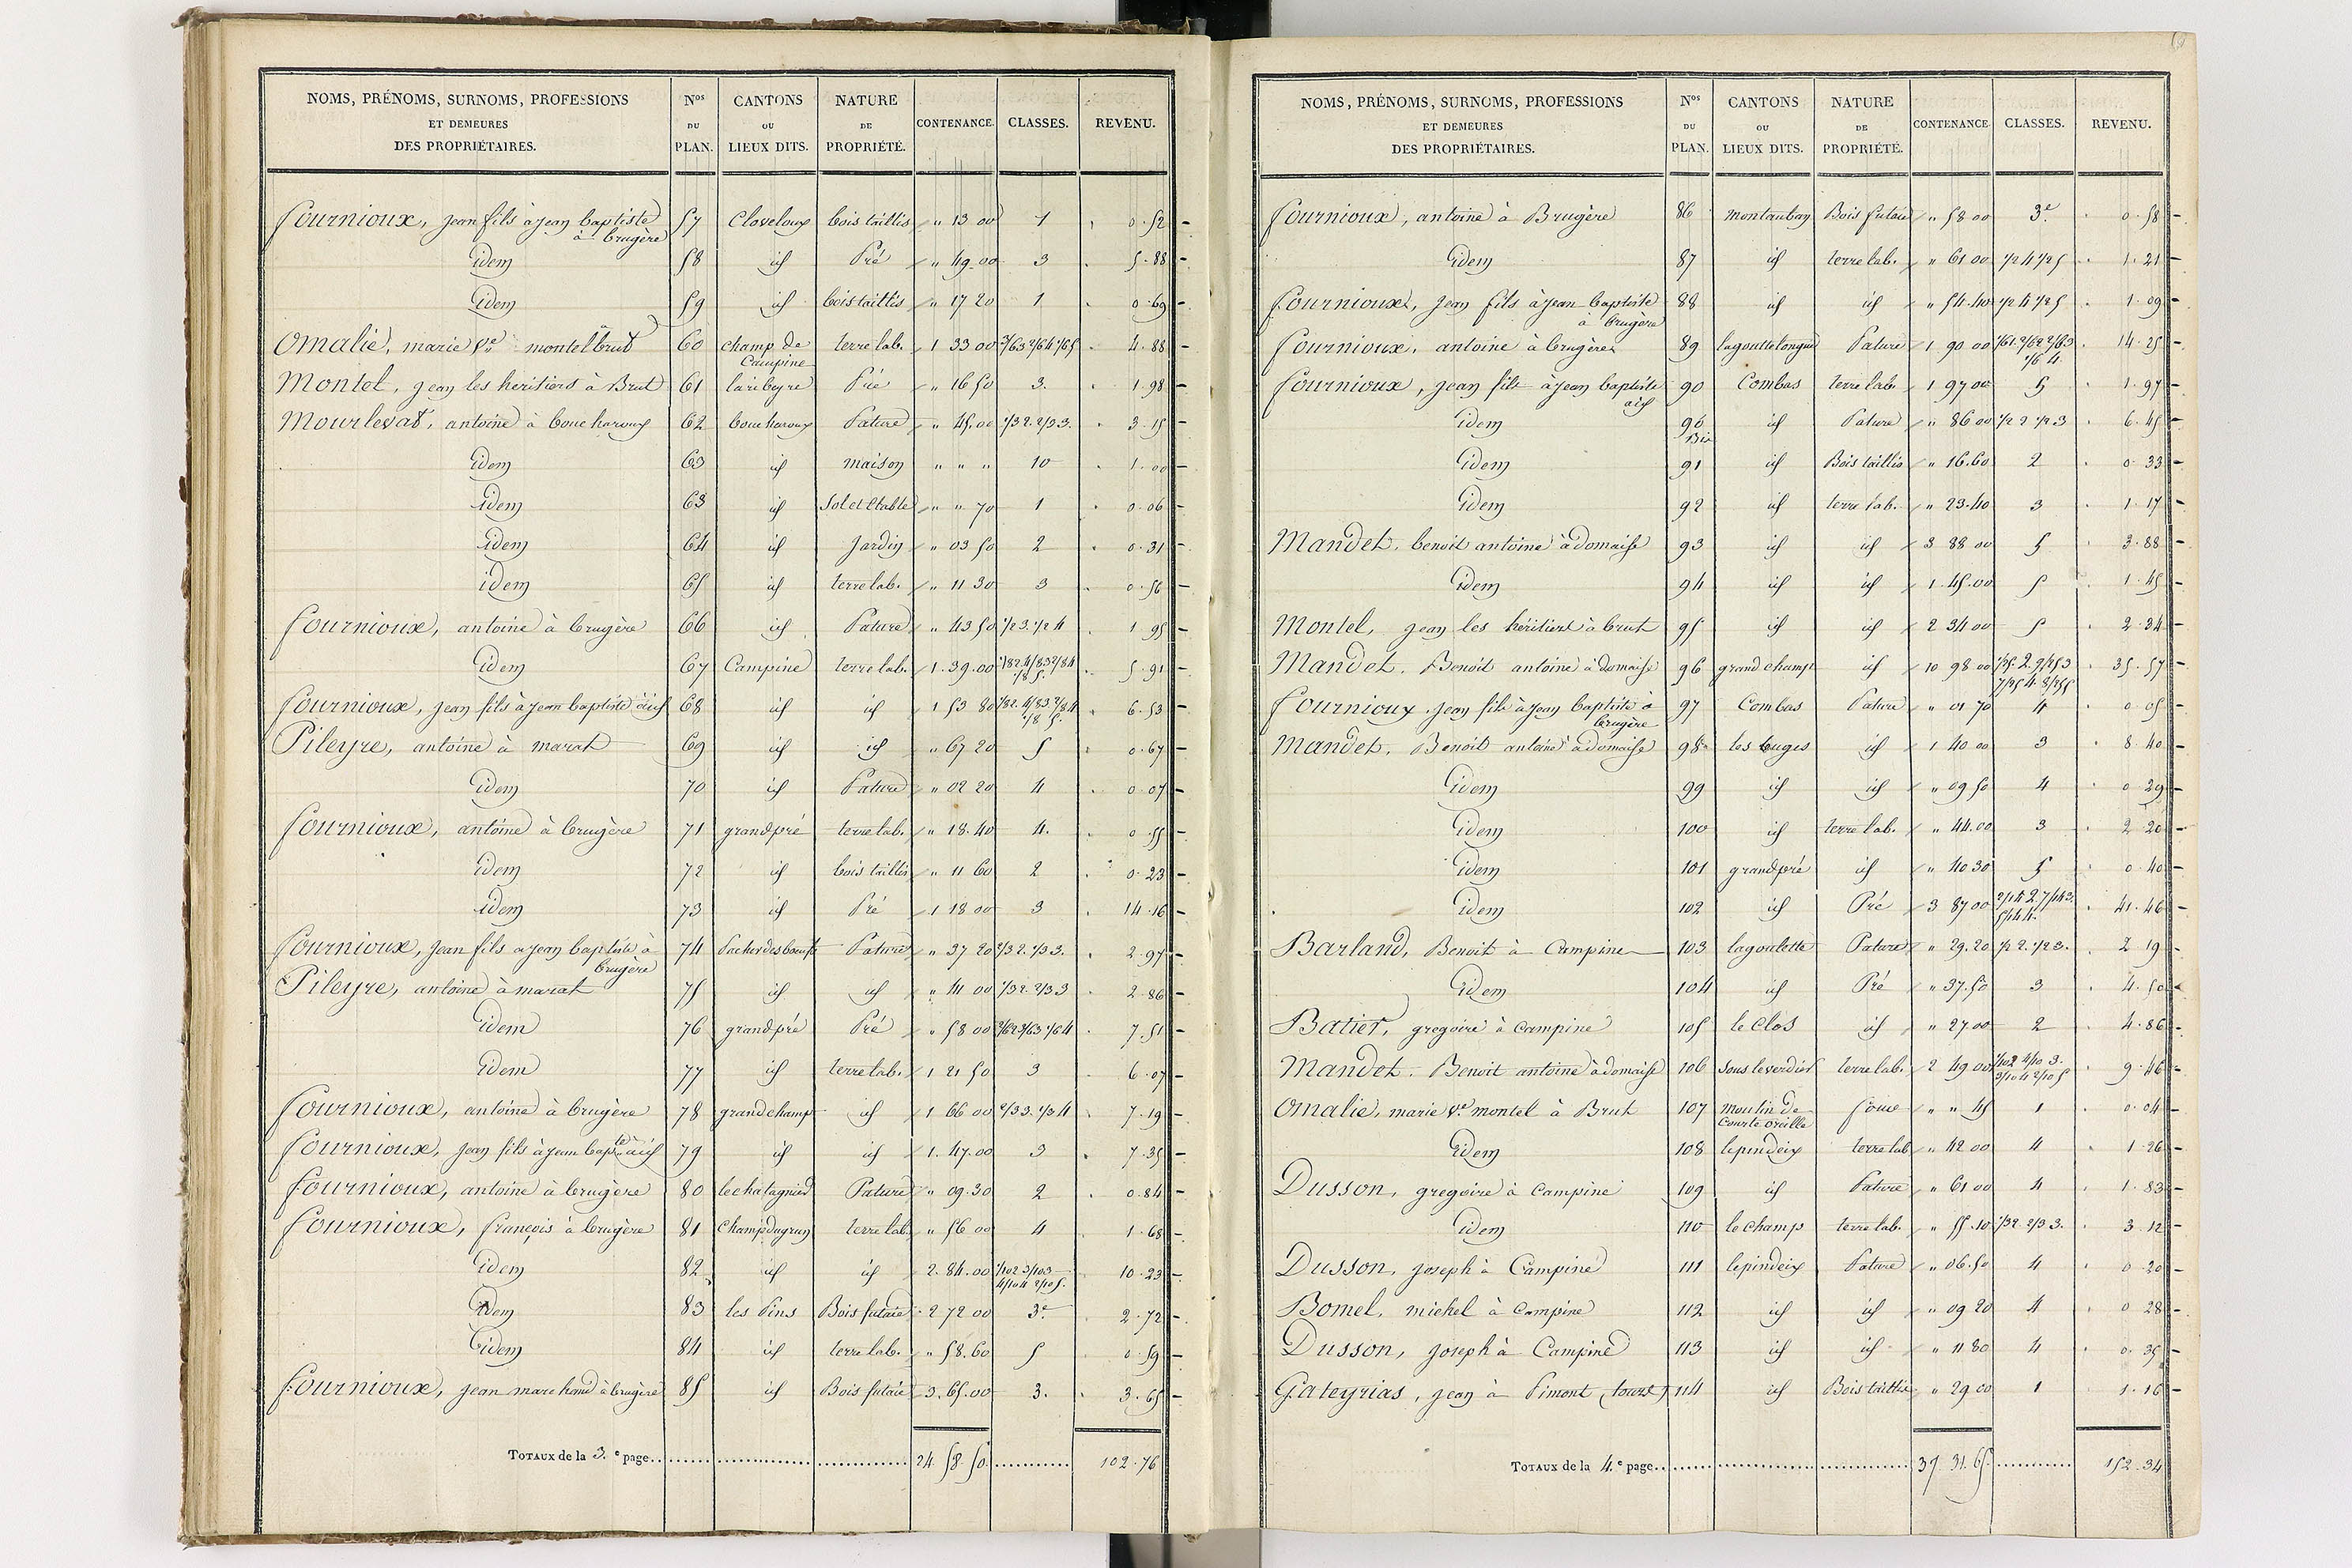 NOMS, PRÉNOMS, SURNOMS, PROFESSIONS ET DEMEURES DES PROPRIÉTAIRES. Nos DU PLAN. CANTONS OU LIEUX DITS. NATURE DE PROPRIÉTÉ. CONTENANCE. CLASSES. REVENU.
fournioux, jean fils à jean baptiste à brugère 57 Claveloux bois taillis " 13 00 1 0.52
Idem 58 id Pré " 49.00 3 5.88
Idem 59 id bois taillis " 17 20 1 0.69
Omalie, marie Ve montel brut 60 champ de Campine terre lab. 1 33 00 2/6 3 2/6 4 2/6 5 4.88
Montel, jean les heritiers à Brut 61 laribeyre Pré " 16 50 3. 1.98
Mourlevat, antoine à boucharoux 62 boucharoux Pature " 45.00 1/3 2. 2/3 3. 3.15
Idem 63 id maison " " " 10 1.00
Idem 63 id Sol et Etable " " 70 1 0.06
Idem 64 id Jardin " 03 50 2 0.31
idem 65 id terre lab. " 11 30 3 0.56
fournioux, antoine à brugère 66 id Pature " 43 50 1/2 3. 1/2 4 1.95
Idem 67 Campine terre lab. 1.39.00 1/8 2. 4/8 3 2/8 4 1/8 5. 5.91
fournioux, jean fils à jean baptiste à id 68 id id 1 53 80 1/8 2. 4/8 3 2/8 4 1/8 5. 6.53
Pileyre, antoine à marat 69 id id " 67 20 5 0.67
Idem 70 id Pature " 02 20 4 0.07
fournioux, antoine à brugère 71 grand pré terre lab. " 18.40 4. 0.55
idem 72 id bois taillis " 11 60 2 0.23
idem 73 id Pré 1 18 00 3 14.16
fournioux, jean fils a jean baptiste à brugère 74 Pacher des boeufs Pature " 37 20 2/3 2. 1/3 3. 2.97
Pileyre, antoine à marat 75 id id " 41 00 1/3 2. 2/3 3 2.86
Idem 76 grand pré Pré " 58 00 2/6 2 3/6 3 1/6 4 7.51
Idem 77 id terre lab. 1 21 50 3 6.07
fournioux, antoine à brugère 78 grand champ id 1 66 00 2/3 3. 1/3 4 7.19
fournioux, jean fils à jean bapte à id 79 id id 1.47.00 3 7.35
fournioux, antoine à brugère 80 le chatagnied Pature " 09.30 2 0.84
fournioux, françois à brugère 81 champ dugrun terre lab " 56 00 4 1.68
Idem 82 id id 2.84.00 1/10 2 3/10 3 4/10 4 2/10 5. 10.23
Idem 83 les Pins Bois futaie 2 72 00 3e 2.72
Idem 84 id terre lab. " 58.60 5 0.59
fournioux, jean marchand à brugère 85 id Bois futaie 3.65.00 3. 3.65
TOTAUX de la 3.e page 24 58.50 102.76
NOMS, PRÉNOMS, SURNOMS, PROFESSIONS ET DEMEURES DES PROPRIÉTAIRES. Nos DU PLAN. CANTONS OU LIEUX DITS. NATURE DE PROPRIÉTÉ. CONTENANCE CLASSES. REVENU.
fournioux, antoine à Brugère 86 montaubay Bois futaie " 58 00 3e 0.58
Idem 87 id terre lab. " 61 00 1/2 4 1/2 5 1.21
fournioux, jean fils à jean baptiste à brugère 88 id id " 54.40 1/2 4 1/2 5 1.09
fournioux, antoine à brugère 89 lagouttelongue Pature 1 90 00 1/6 1. 2/6 2 2/6 3 1/6 4. 14.25
fournioux, jean fils à jean baptiste à id 90 Combas terre lab 1 97 00 5 1.97
Idem 90 Bis id Pature " 86 00 1/2 2 1/2 3 6.45
Idem 91 id Bois taillis " 16.60 2 0.33
Idem 92 id terre lab. " 23.40 3 1.17
Mandet, benoit antoine à domaise 93 id id 3 88 00 5 3.88
Idem 94 id id 1.45.00 5 1.45
Montel, jean les héritiers à brut 95 id id 2 34 00 5 2.34
Mandet, Benoit antoine à domaise 96 grand champ id 10 98 00 1/25 2. 9/25 3 7/25 4 8/25 5 35.57
fournioux, jean fils à jean baptiste à brugère 97 Combas Pature " 01 70 4 0 05
Mandet, Benoit antoine à domaise 98 les buges id 1 40 00 3 8.40
Idem 99 id id " 09 50 4 0 29
Idem 100 id terre lab. " 44.00 3 2 20
Idem 101 grand pré id " 40 30 5 0.40
Idem 102 id Pré 3 87 00 2/14 2. 7/14 3. 5/14 4. 41.46
Barland, Benoit à Campine 103 lagoulette Pature " 29.20 1/2 2. 1/2 3. 2 19
Idem 104 id Pré " 37.50 3 4.50
Batier, gregoire à Campine 105 le Clos id " 27.00 2 4.86
Mandet, Benoit antoine à domaise 106 Sous le verdier terre lab. 2 49 00 1/10 2 4/10 3. 3/10 4 2/10 5 9.46
Omalie, marie Ve montel à Brut 107 moulin de Courte oreille " " 45 1 0.04
Idem 108 lepindeix terre lab " 42 00 4 1.26
Dusson, gregoire à Campine 109 id Pature " 61 00 4 1.83
Idem 110 le champ terre lab. " 55.10 1/3 2. 2/3 3. 3 12
Dusson, joseph à Campine 111 lepindeix Pature " 06.50 4 0.20
Bomel, michel à Campine 112 id id " 09 20 4 0 28
Dusson, joseph à Campine 113 id id " 11 80 4 0.35
Gateyrias, jean à Pimont (tours) 114 id Bois taillis " 29 00 1 1.16
TOTAUX de la 4.e page 37 31.65 152.34